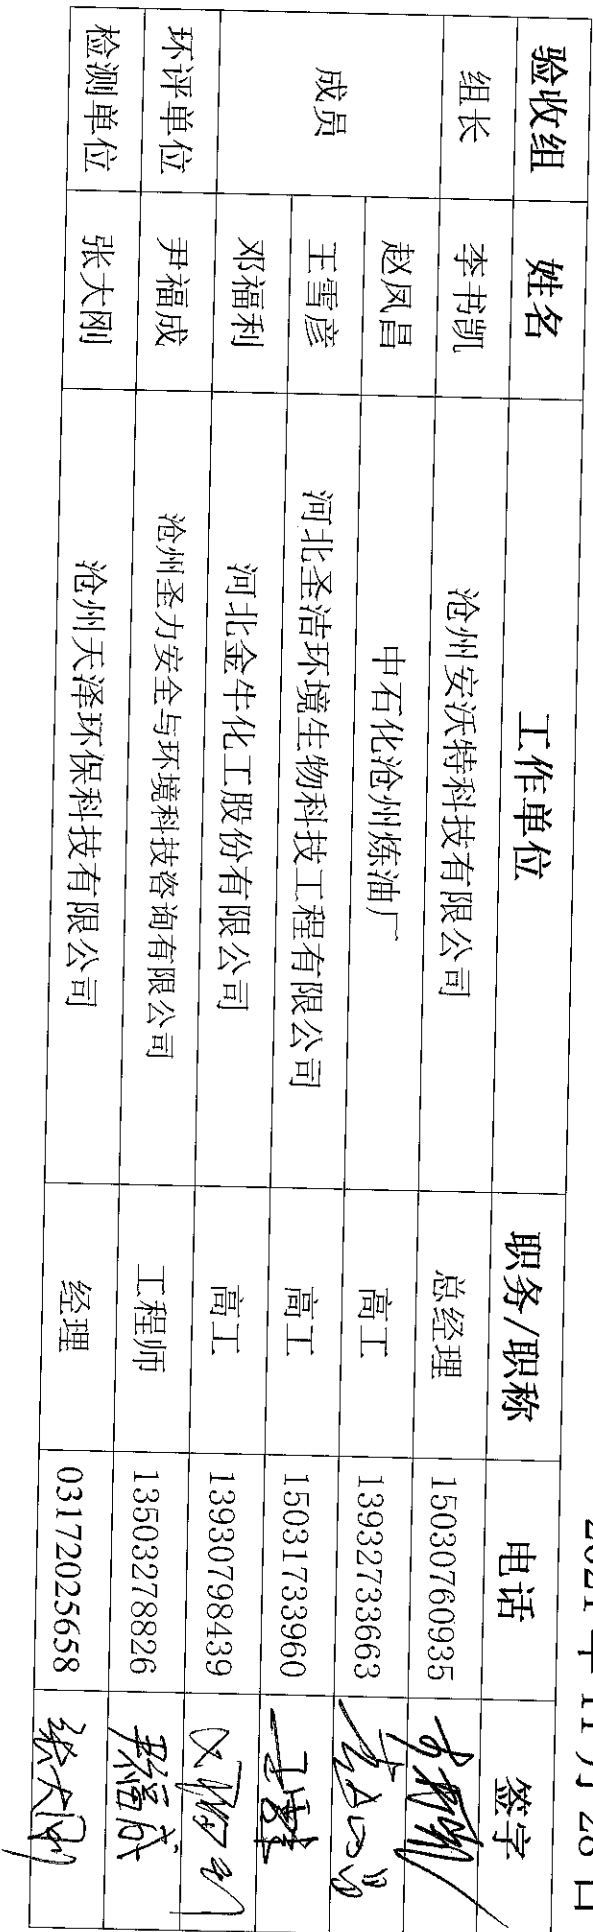 2021 年 11 月 28 日
验收组 姓名 工作单位 职务/职称 电话 签字
组长 李书凯 沧州安沃特科技有限公司 总经理 15030760935
成员 赵凤昌 中石化沧州炼油厂 高工 13932733663
王雪彦 河北圣洁环境生物科技工程有限公司 高工 15031733960
邓福利 河北金牛化工股份有限公司 高工 13930798439
环评单位 尹福成 沧州圣力安全与环境科技咨询有限公司 工程师 13503278826 尹福成
检测单位 张大刚 沧州天泽环保科技有限公司 经理 03172025658 张大刚